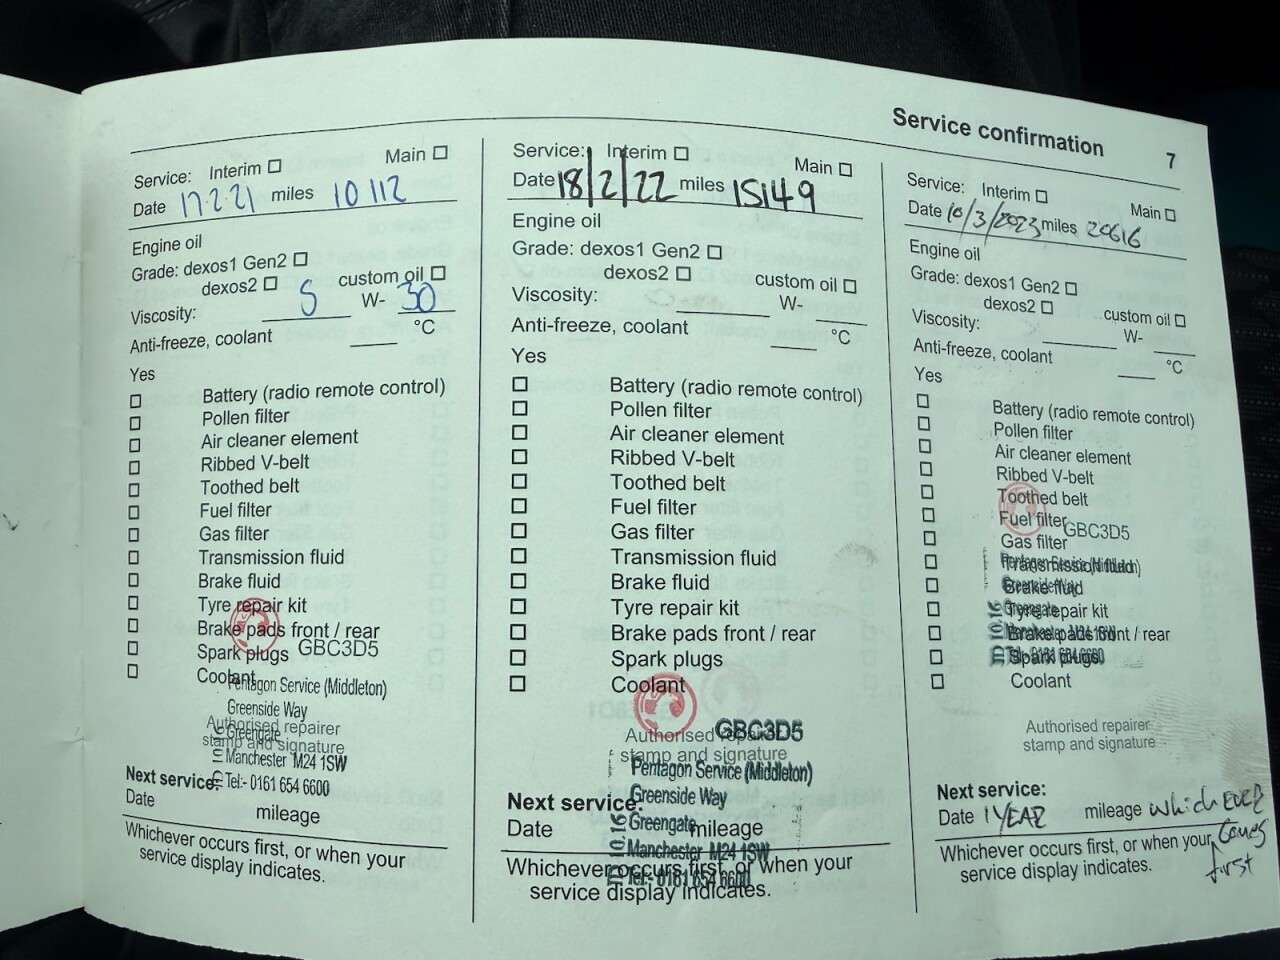 Service confirmation 7
Service: Interim Main
Date 17.2.21 miles 10112
Engine oil
Grade: dexos1 Gen2
dexos2 custom oil
Viscosity: 5 W- 30
Anti-freeze, coolant °C
Yes
Battery (radio remote control)
Pollen filter
Air cleaner element
Ribbed V-belt
Toothed belt
Fuel filter
Gas filter
Transmission fluid
Brake fluid
Tyre repair kit
Brake pads front / rear
Spark plugs GBC3D5
Coolant
Pentagon Service (Middleton)
Greenside Way
Authorised repairer
Greengate
stamp and signature
Manchester M24 1SW
Tel:- 0161 654 6600
Next service:
Date mileage
Whichever occurs first, or when your
service display indicates.
Service: Interim Main
Date 18/2/22 miles 15149
Engine oil
Grade: dexos1 Gen2
dexos2 custom oil
Viscosity: W-
Anti-freeze, coolant °C
Yes
Battery (radio remote control)
Pollen filter
Air cleaner element
Ribbed V-belt
Toothed belt
Fuel filter
Gas filter
Transmission fluid
Brake fluid
Tyre repair kit
Brake pads front / rear
Spark plugs
Coolant
GBC3D5
Authorised repairer
stamp and signature
Pentagon Service (Middleton)
Greenside Way
Greengate
Manchester M24 1SW
Tel:- 0161 654 6600
TD 10.16
Next service:
Date mileage
Whichever occurs first, or when your
service display indicates.
Service: Interim Main
Date 10/3/2023 miles 20616
Engine oil
Grade: dexos1 Gen2
dexos2 custom oil
Viscosity: W-
Anti-freeze, coolant °C
Yes
Battery (radio remote control)
Pollen filter
Air cleaner element
Ribbed V-belt
Toothed belt
Fuel filter
GBC3D5
Gas filter
Transmission fluid
Brake fluid
Tyre repair kit
Brake pads front / rear
Spark plugs
Coolant
Pentagon Service (Middleton)
Greenside Way
Greengate
Manchester M24 1SW
Tel:- 0161 654 6600
TD 10.16
Authorised repairer
stamp and signature
Next service:
Date 1 YEAR mileage whichever
Whichever occurs first, or when your comes
service display indicates. first